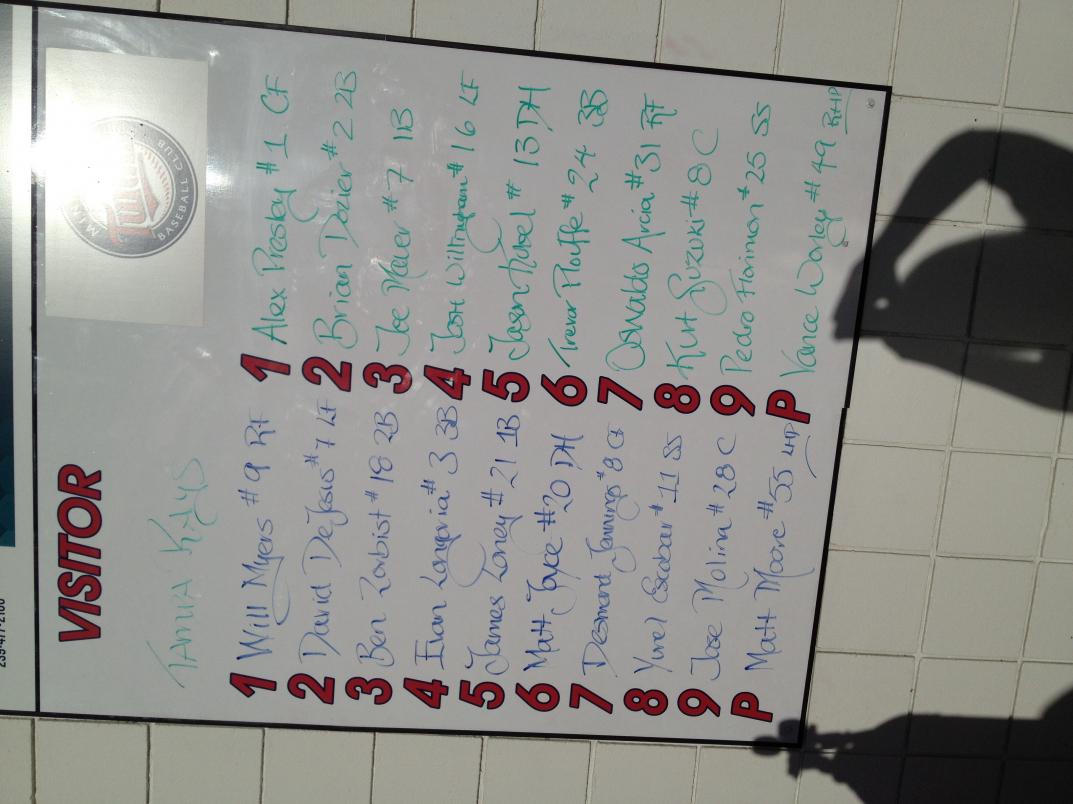 VISITOR
TAMPA RAYS
1 Will Myers #9 RF
2 David DeJesus #7 LF
3 Ben Zorbist #18 2B
4 Evan Longoria #3 3B
5 James Loney #21 1B
6 Matt Joyce #20 DH
7 Desmond Jennings #8 CF
8 Yunel Escobar #11 SS
9 Jose Molina #28 C
P Matt Moore #55 LHP
BASEBALL CLUB
1 Alex Presley #1 CF
2 Brian Dozier #2 2B
3 Joe Mauer #7 1B
4 Josh Willingham #16 LF
5 Jason Kubel #13 DH
6 Trevor Plouffe #24 3B
7 Oswaldo Arcia #31 RF
8 Kurt Suzuki #8 C
9 Pedro Florimon #25 SS
P Vance Worley #49 RHP